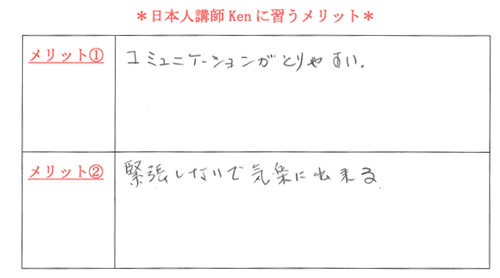 ＊日本人講師 Ken に習うメリット＊
メリット①
コミュニケーションがとりやすい.
メリット②
緊張しないで気楽に出来る